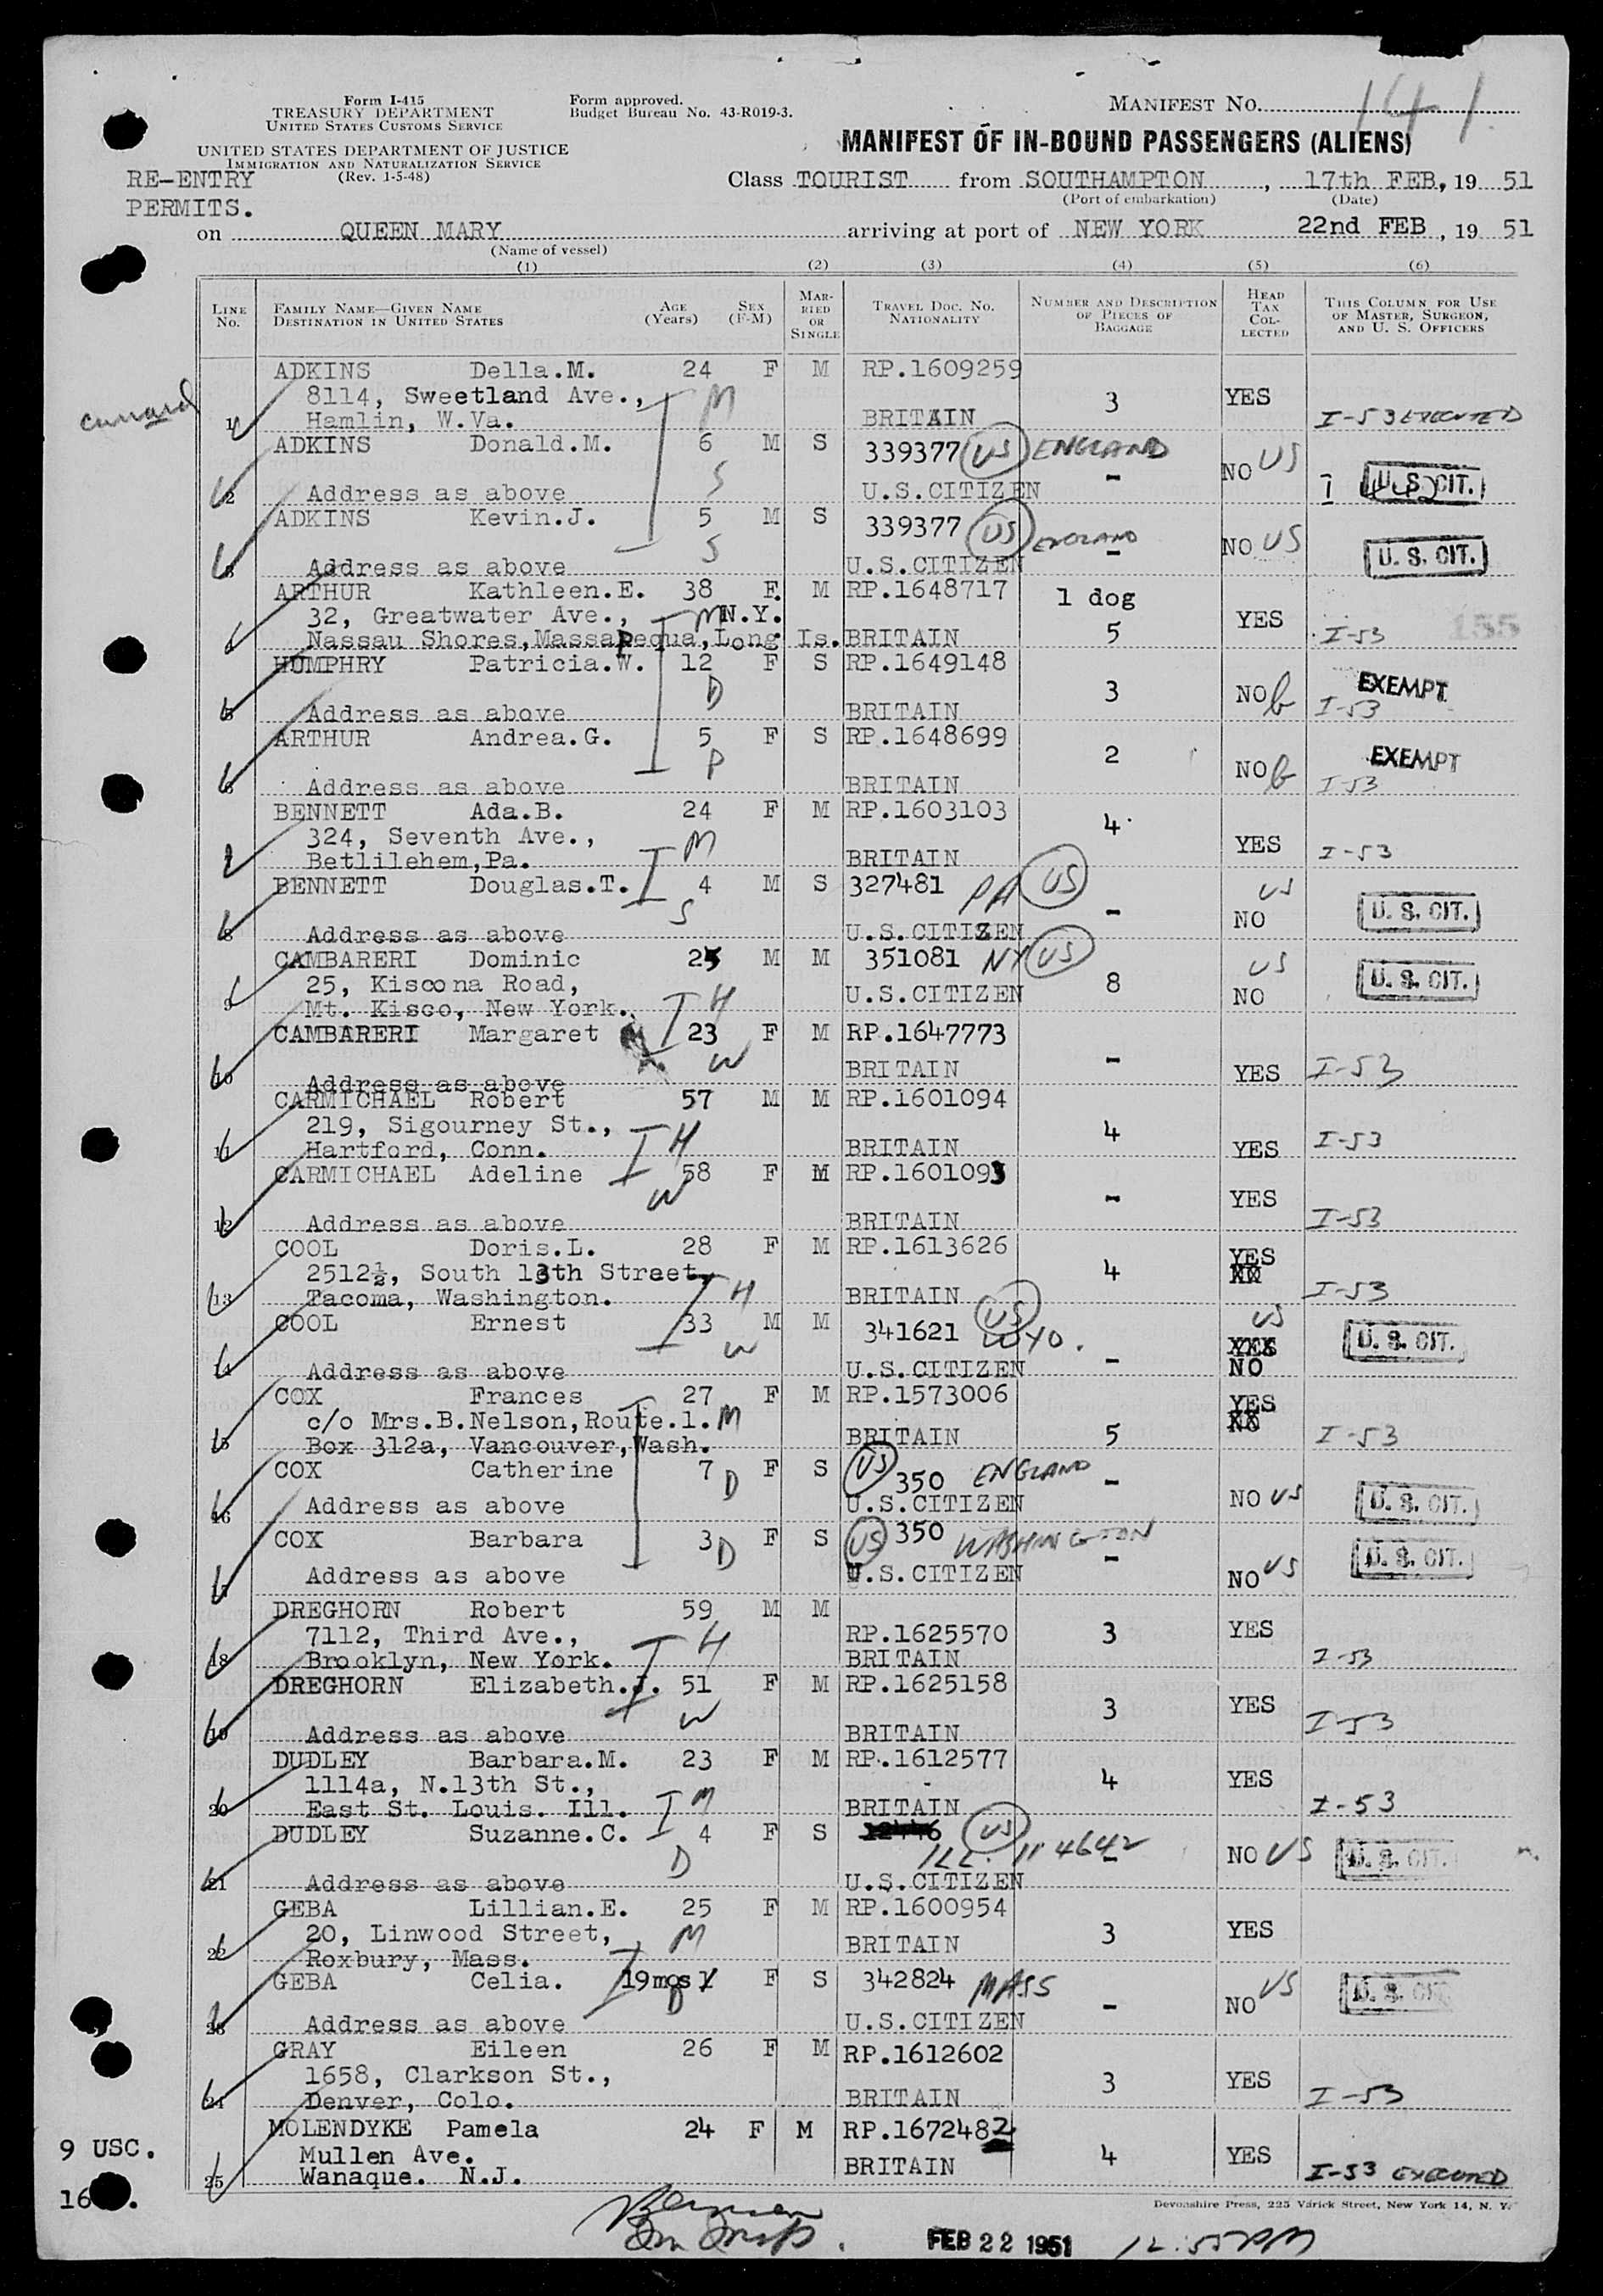 Form I-415
TREASURY DEPARTMENT
UNITED STATES CUSTOMS SERVICE
UNITED STATES DEPARTMENT OF JUSTICE
IMMIGRATION AND NATURALIZATION SERVICE
(Rev. 1-5-48)
Form approved.
Budget Bureau No. 43-R019-3.
MANIFEST NO. 141
MANIFEST OF IN-BOUND PASSENGERS (ALIENS)
RE-ENTRY
PERMITS.
Class TOURIST from SOUTHAMPTON, 17th FEB, 19 51
(Port of embarkation) (Date)
on QUEEN MARY arriving at port of NEW YORK 22nd FEB, 19 51
(Name of vessel)
(1) (2) (3) (4) (5) (6)
LINE No. FAMILY NAME—GIVEN NAME DESTINATION IN UNITED STATES AGE (Years) SEX (F-M) MARRIED OR SINGLE TRAVEL DOC. NO. NATIONALITY NUMBER AND DESCRIPTION OF PIECES OF BAGGAGE HEAD TAX COLLECTED THIS COLUMN FOR USE OF MASTER, SURGEON, AND U. S. OFFICERS
ADKINS Della.M. 24 F M RP.1609259
cunard 8114, Sweetland Ave., M 3 YES
1 Hamlin, W.Va. BRITAIN I-53 EXECUTED
ADKINS Donald.M. 6 M S 339377 US ENGLAND
S - NO US
2 Address as above U.S.CITIZEN U.S. CIT.
ADKINS Kevin.J. 5 M S 339377 US ENGLAND
S - NO US U. S. CIT.
3 Address as above U.S.CITIZEN
ARTHUR Kathleen.E. 38 F. M RP.1648717 1 dog
32, Greatwater Ave., M N.Y. YES
Nassau Shores,Massapequa,Long Is. BRITAIN 5 I-53 155
HUMPHRY Patricia.W. 12 F S RP.1649148
D 3 NO EXEMPT
5 Address as above BRITAIN I-53
ARTHUR Andrea.G. 5 F S RP.1648699
2 NO EXEMPT
6 Address as above BRITAIN I-53
BENNETT Ada.B. 24 F M RP.1603103
324, Seventh Ave., M 4 YES
Betlilehem,Pa. BRITAIN I-53
BENNETT Douglas.T. 4 M S 327481 PA US US
S - NO U. S. CIT.
8 Address as above U.S.CITIZEN
CAMBARERI Dominic 25 M M 351081 NY US US
25, Kiscona Road, 8 NO U. S. CIT.
9 Mt. Kisco, New York. H U.S.CITIZEN
CAMBARERI Margaret 23 F M RP.1647773
W - YES I-53
10 Address as above BRITAIN
CARMICHAEL Robert 57 M M RP.1601094
219, Sigourney St., H 4
11 Hartford, Conn. BRITAIN YES I-53
CARMICHAEL Adeline 58 F M RP.1601093
W - YES
12 Address as above BRITAIN I-53
COOL Doris.L. 28 F M RP.1613626 YES
2512½, South 13th Street, 4 NO
13 Tacoma, Washington. H BRITAIN I-53
COOL Ernest 33 M M 341621 US WYO. US
W YES U. S. CIT.
Address as above U.S.CITIZEN - NO
COX Frances 27 F M RP.1573006 YES
c/o Mrs.B.Nelson,Route.1. M NO
15 Box 312a, Vancouver,Wash. BRITAIN 5 I-53
COX Catherine 7 D F S US 350 ENGLAND -
16 Address as above U.S.CITIZEN NO US U. S. CIT.
COX Barbara 3 D F S US 350 WASHINGTON
- U. S. CIT.
Address as above U.S.CITIZEN NO US
DREGHORN Robert 59 M M
7112, Third Ave., H RP.1625570 3 YES
18 Brooklyn, New York. BRITAIN I-53
DREGHORN Elizabeth.J. 51 F M RP.1625158
W 3 YES
19 Address as above BRITAIN I-53
DUDLEY Barbara.M. 23 F M RP.1612577
1114a, N.13th St., 4 YES
20 East St. Louis. Ill. M BRITAIN I-53
DUDLEY Suzanne.C. 4 F S US
D ILL. 114642 - NO US U. S. CIT.
21 Address as above U.S.CITIZEN
GEBA Lillian.E. 25 F M RP.1600954
20, Linwood Street, M 3 YES
22 Roxbury, Mass. BRITAIN
GEBA Celia. 19mos F S 342824 MASS US
- NO U. S. CIT.
23 Address as above U.S.CITIZEN
GRAY Eileen 26 F M RP.1612602
1658, Clarkson St., 3 YES
24 Denver, Colo. BRITAIN I-53
MOLENDYKE Pamela 24 F M RP.1672482
9 USC. Mullen Ave. BRITAIN 4 YES
25 Wanaque. N.J. I-53 EXECUTED
16
Devonshire Press, 225 Varick Street, New York 14, N. Y.
FEB 22 1951 12:55 PM